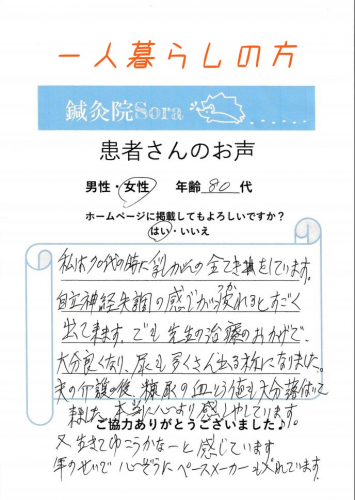 一人暮らしの方
鍼灸院Sora
患者さんのお声
男性・女性 年齢 80 代
ホームページに掲載してもよろしいですか?
はい・いいえ
私は70代の時に乳がんの全てき手をしています。
自立神経失調の感じが疲れるとすごく
出て来ます。でも先生の治療のおかげで、
大分良くなり、尿も多くさん出る様になりました。
夫の介護の後、糖尿の血とう値も大分落付いて
来ました。本当に心より感しやしています。
ご協力ありがとうございました♪
又、生きてゆこうかなーと感じています
年のせいで心ぞうにペースメーカーも入れています。